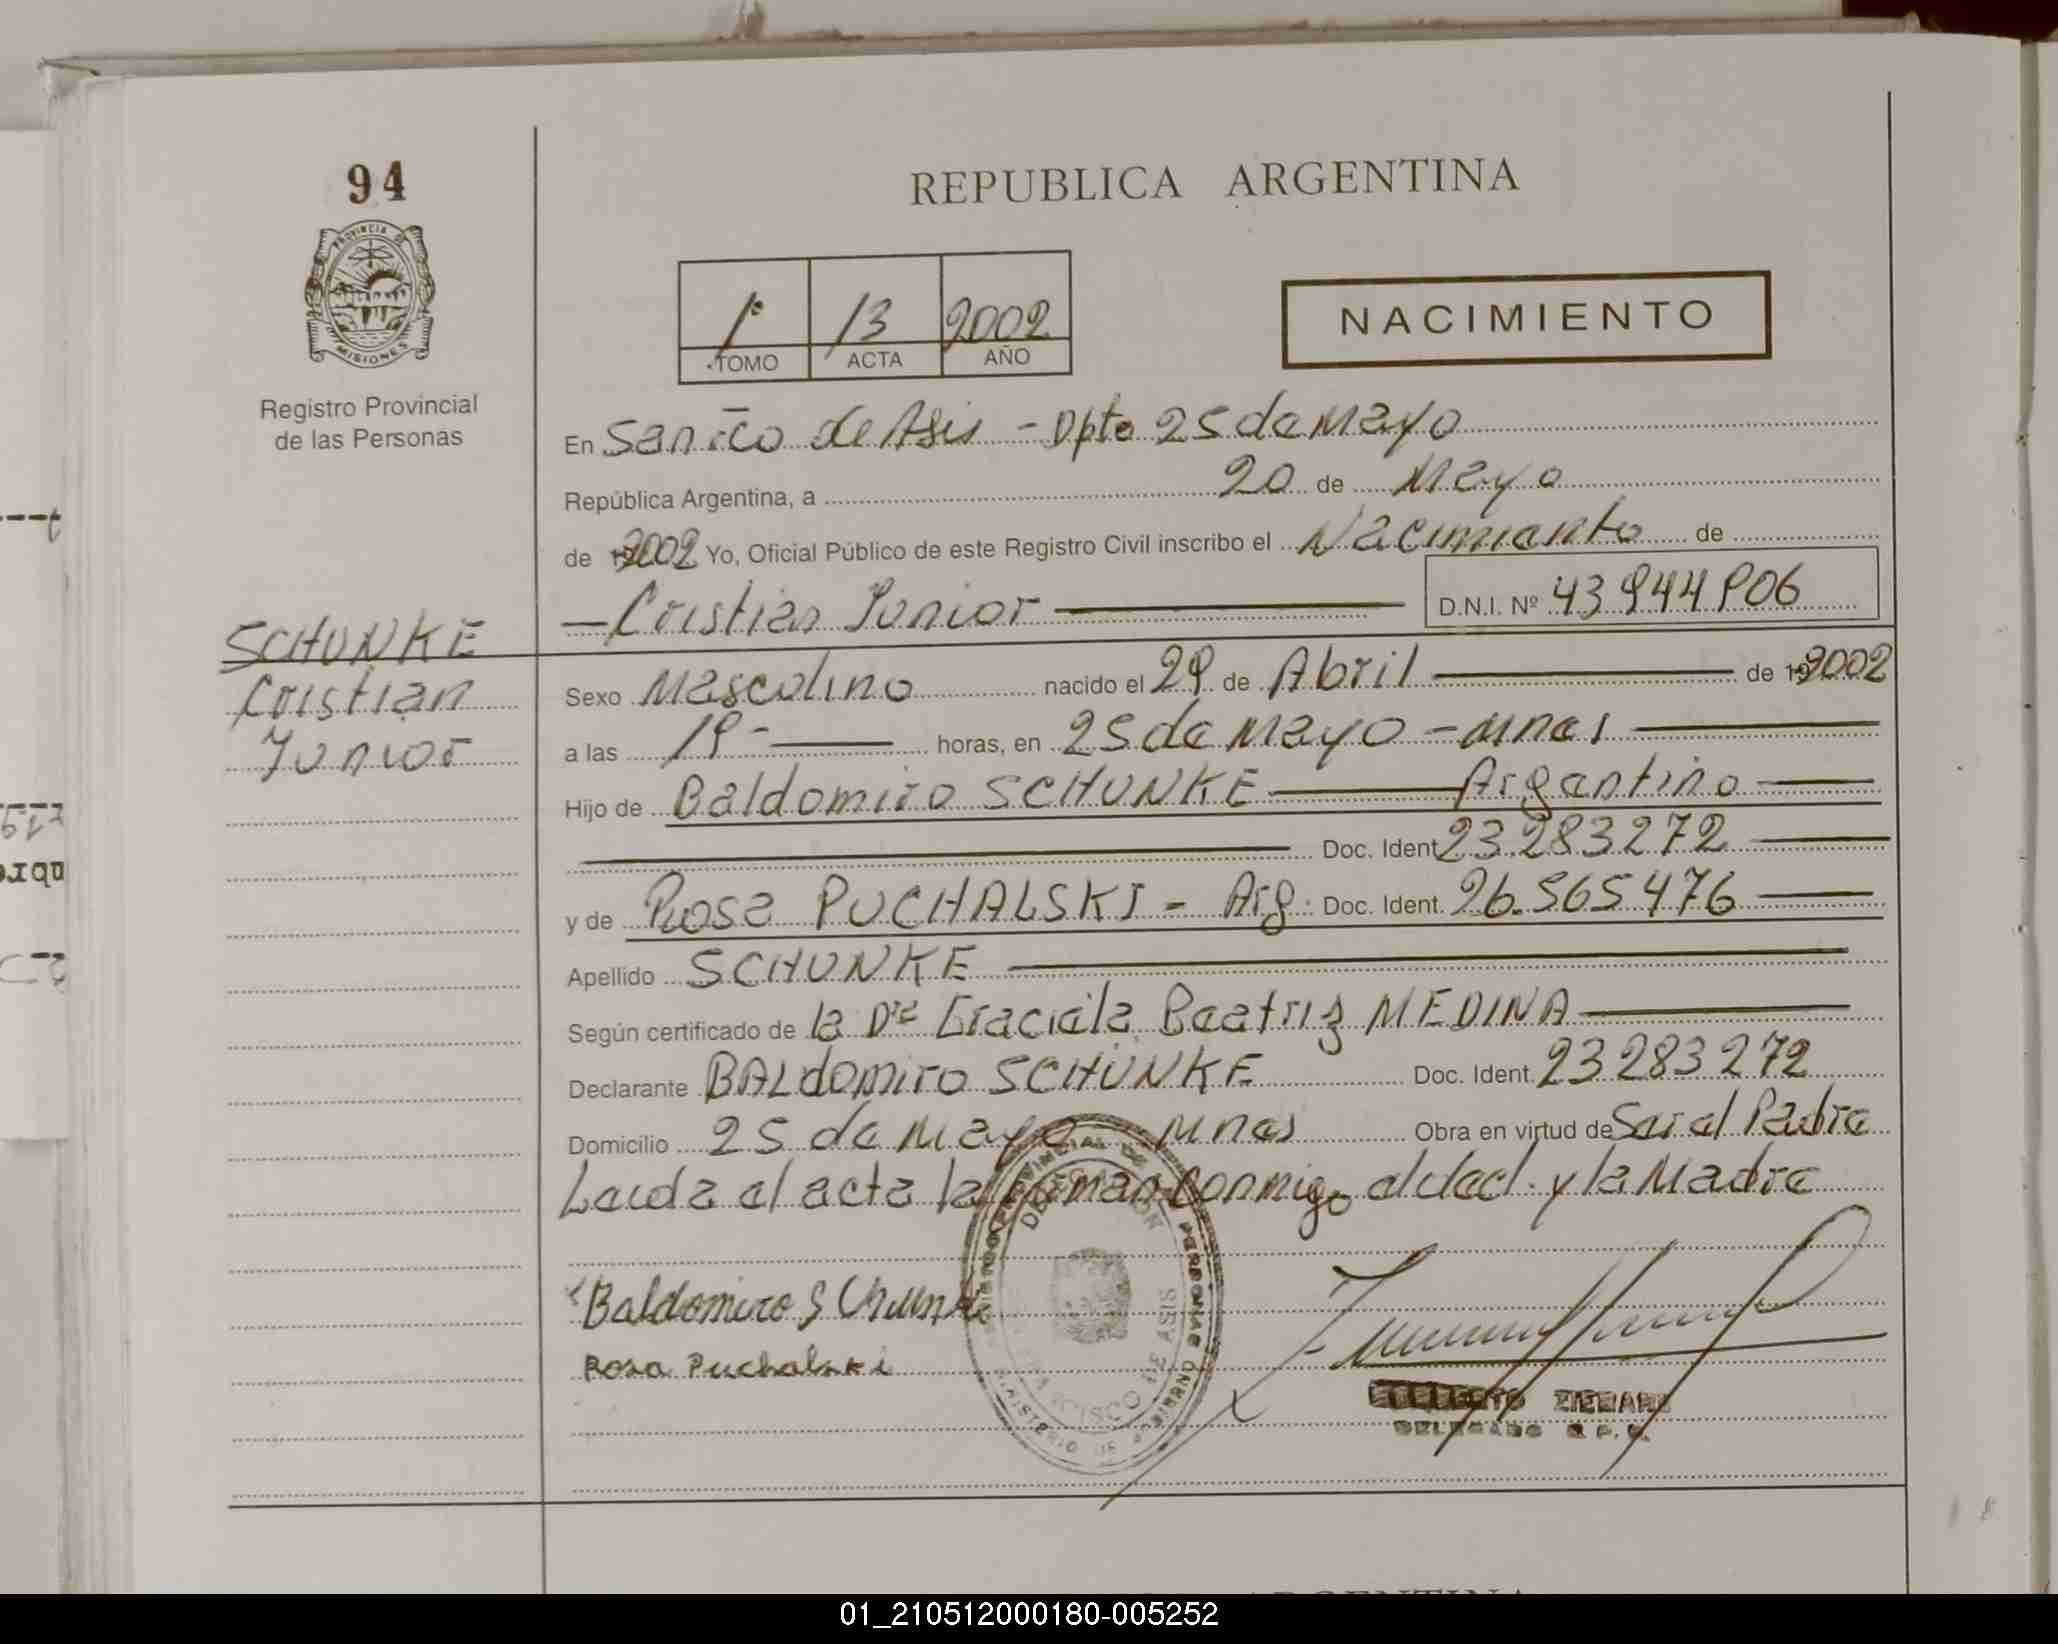 94
REPUBLICA ARGENTINA
PROVINCIA DE
MISIONES
Registro Provincial
de las Personas
1º 13 2002
TOMO ACTA AÑO
NACIMIENTO
En San Fco de Asis - Dpto 25 de Mayo
República Argentina, a 20 de Mayo
de 2002 Yo, Oficial Público de este Registro Civil inscribo el Nacimiento de
- Cristian Junior D.N.I. Nº 43944906
SCHUNKE
Cristian
Junior
Sexo Masculino nacido el 29 de Abril de 2002
a las 19 - horas, en 25 de Mayo - Mnes
Hijo de Baldomiro SCHUNKE Argentino
Doc. Ident 23.283272
y de Rosa PUCHALSKI - Arg. Doc. Ident. 26.565476
Apellido SCHUNKE
Según certificado de la Dra Graciela Beatriz MEDINA
Declarante BALdomiro SCHÜNKE Doc. Ident. 23283272
Domicilio 25 de Mayo Mnes Obra en virtud de Ser el Padre
Leida el acta la firman conmigo el decl. y la Madre
Baldomiro Schunke
Rosa Puchalski
DELEGADO R.P.P.
01_210512000180-005252